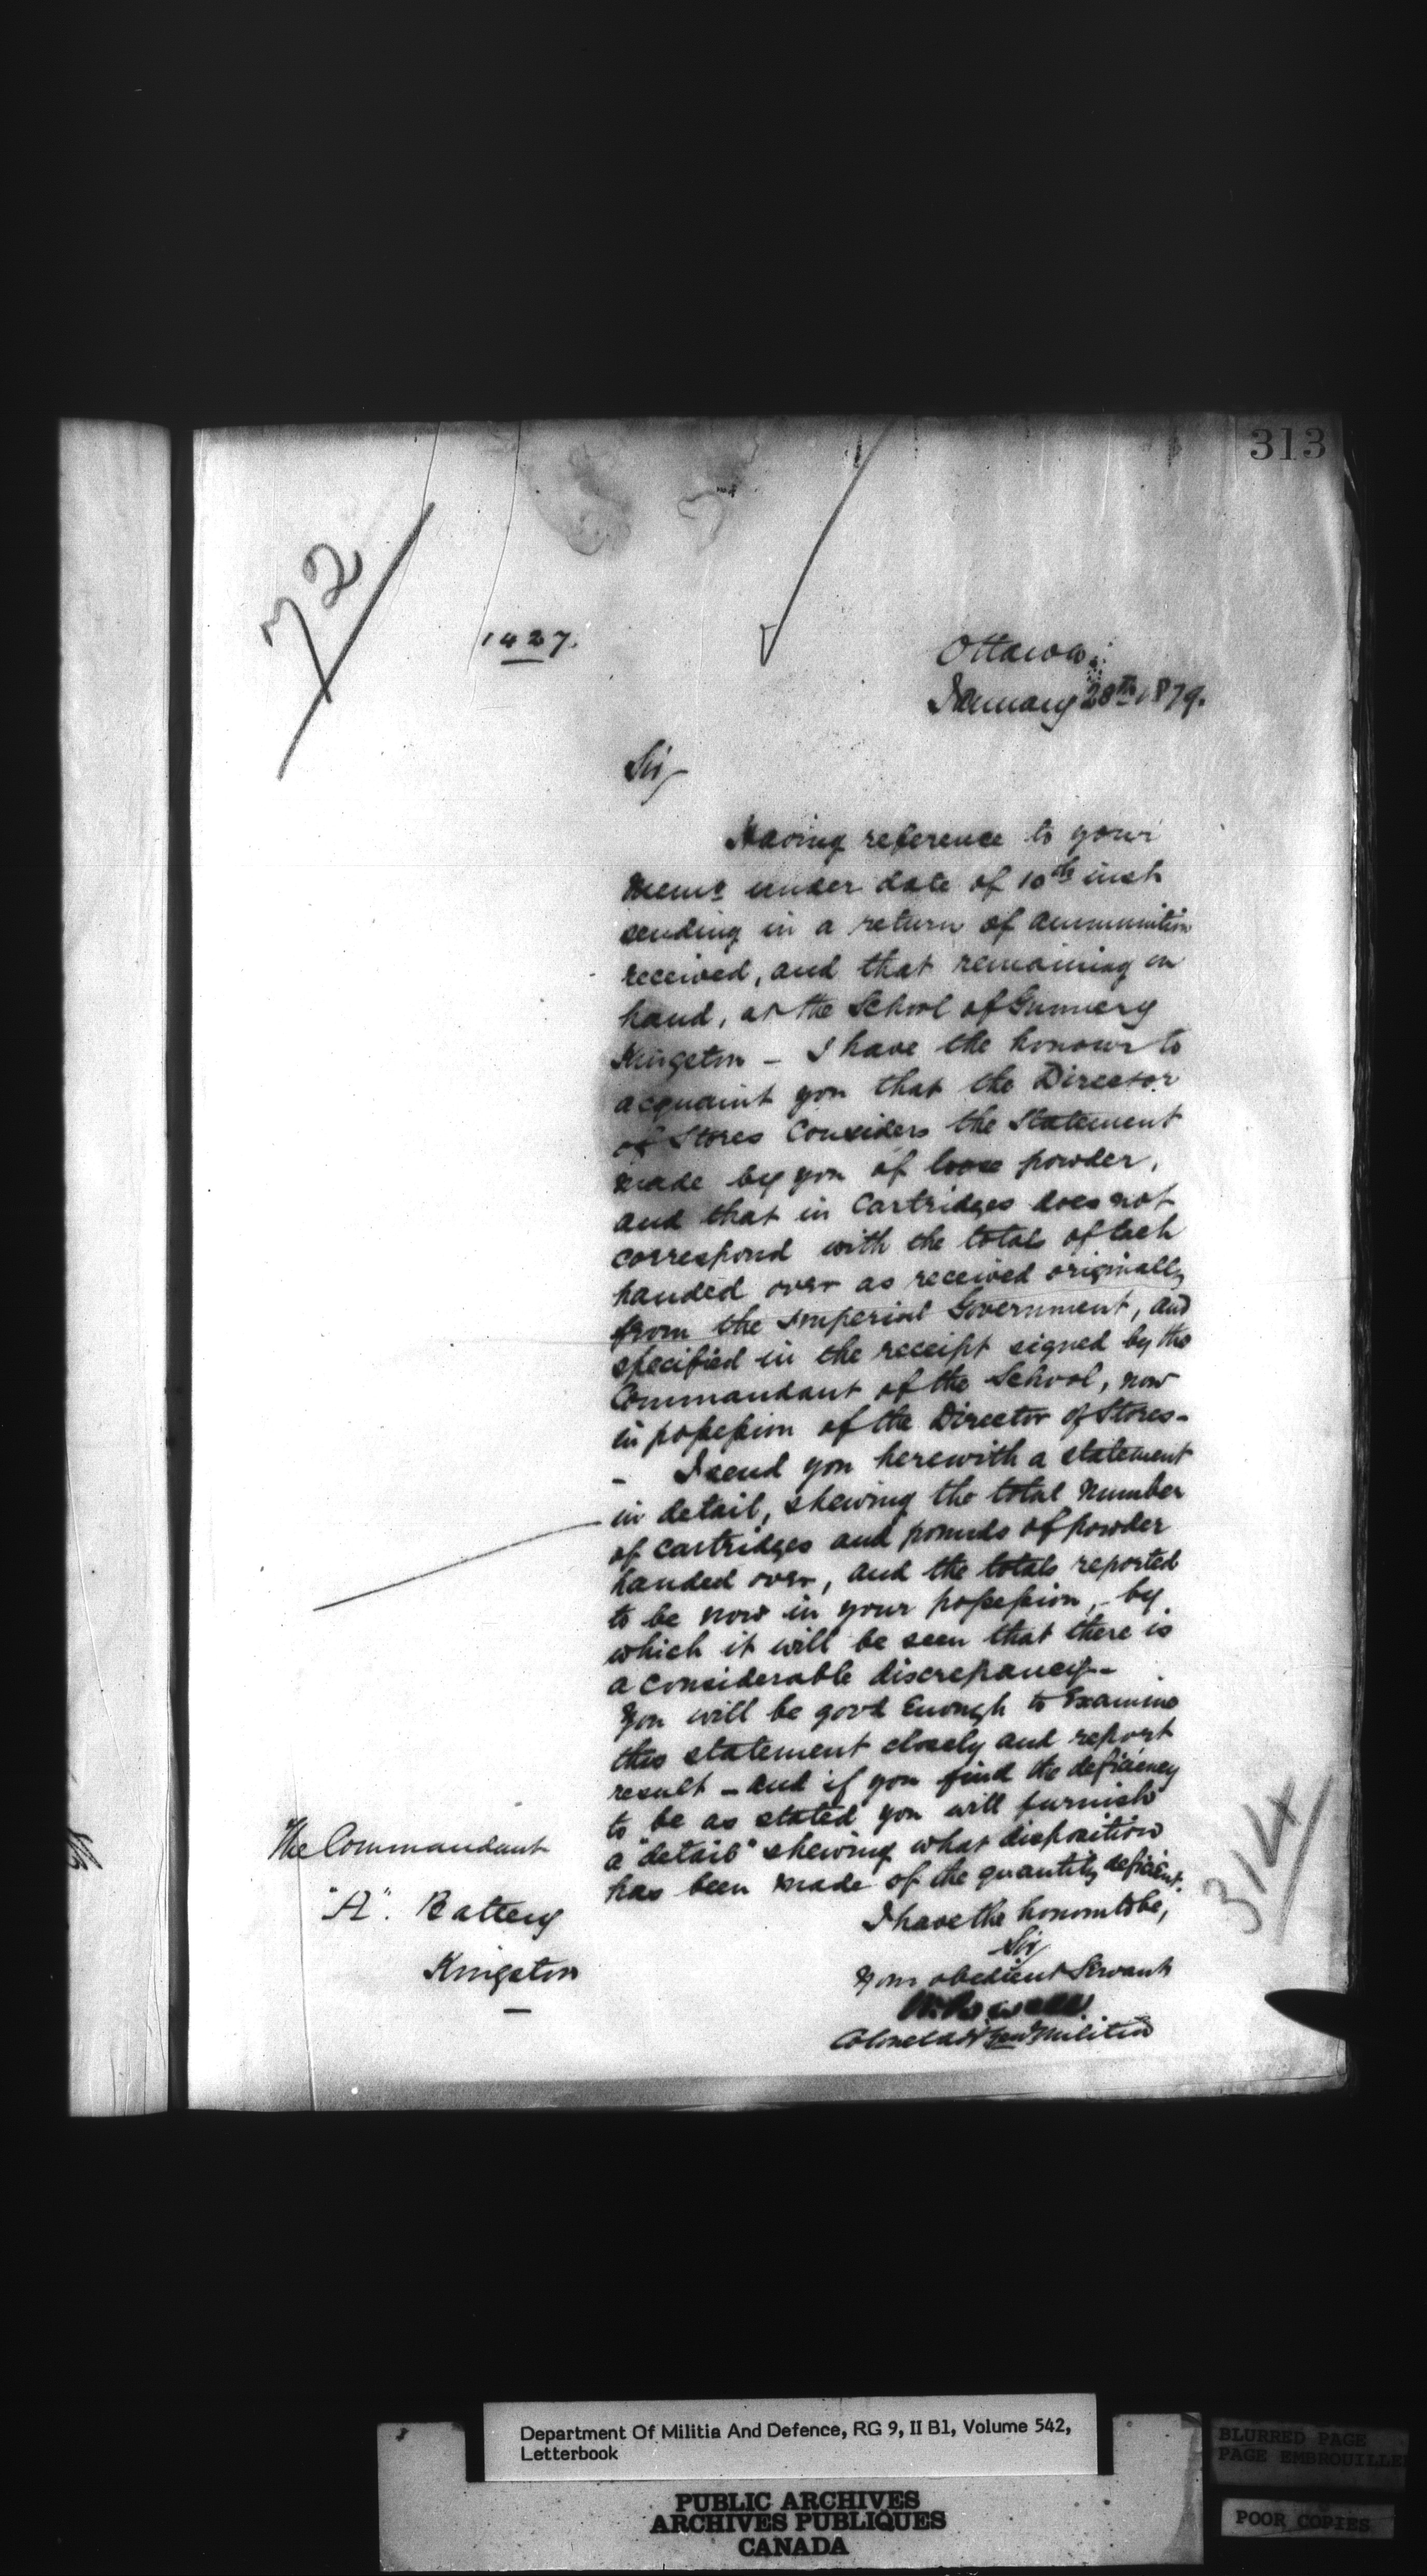 313
72
1427.
Ottawa,
January 28th 1879.
Sir,
Having reference to your
Memo under date of 10th inst
sending in a return of ammunition
received, and that remaining on
hand, at the School of Gunnery
Kingston - I have the honour to
acquaint you that the Director
of Stores Considers the Statement
made by you of loose powder,
and that in Cartridges does not
correspond with the totals of each
handed over as received originally
from the Imperial Government, and
specified in the receipt signed by the
Commandant of the School, now
in possession of the Director of Stores-
- I send you herewith a statement
in detail, shewing the total number
of Cartridges and pounds of powder
handed over, and the totals reported
to be now in your possession, - by
which it will be seen that there is
a considerable discrepancy--
You will be good Enough to Examine
this statement closely and report
result - and if you find the deficiency
to be as stated you will furnish
a "detail" shewing what disposition
has been made of the quantity deficient.
I have the honour to be,
Sir
Your obedient Servant
W. Powell
Colonel Adjt Genl Militia
The Commandant
"A". Battery
Kingston
314
Department Of Militia And Defence, RG 9, II B1, Volume 542,
Letterbook
PUBLIC ARCHIVES
ARCHIVES PUBLIQUES
CANADA
BLURRED PAGE
PAGE EMBROUILLE
POOR COPIES